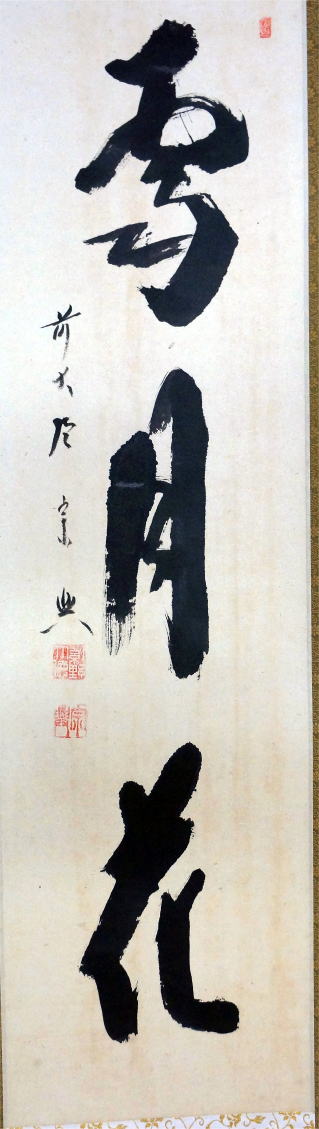 雪月花
前大徳宗興